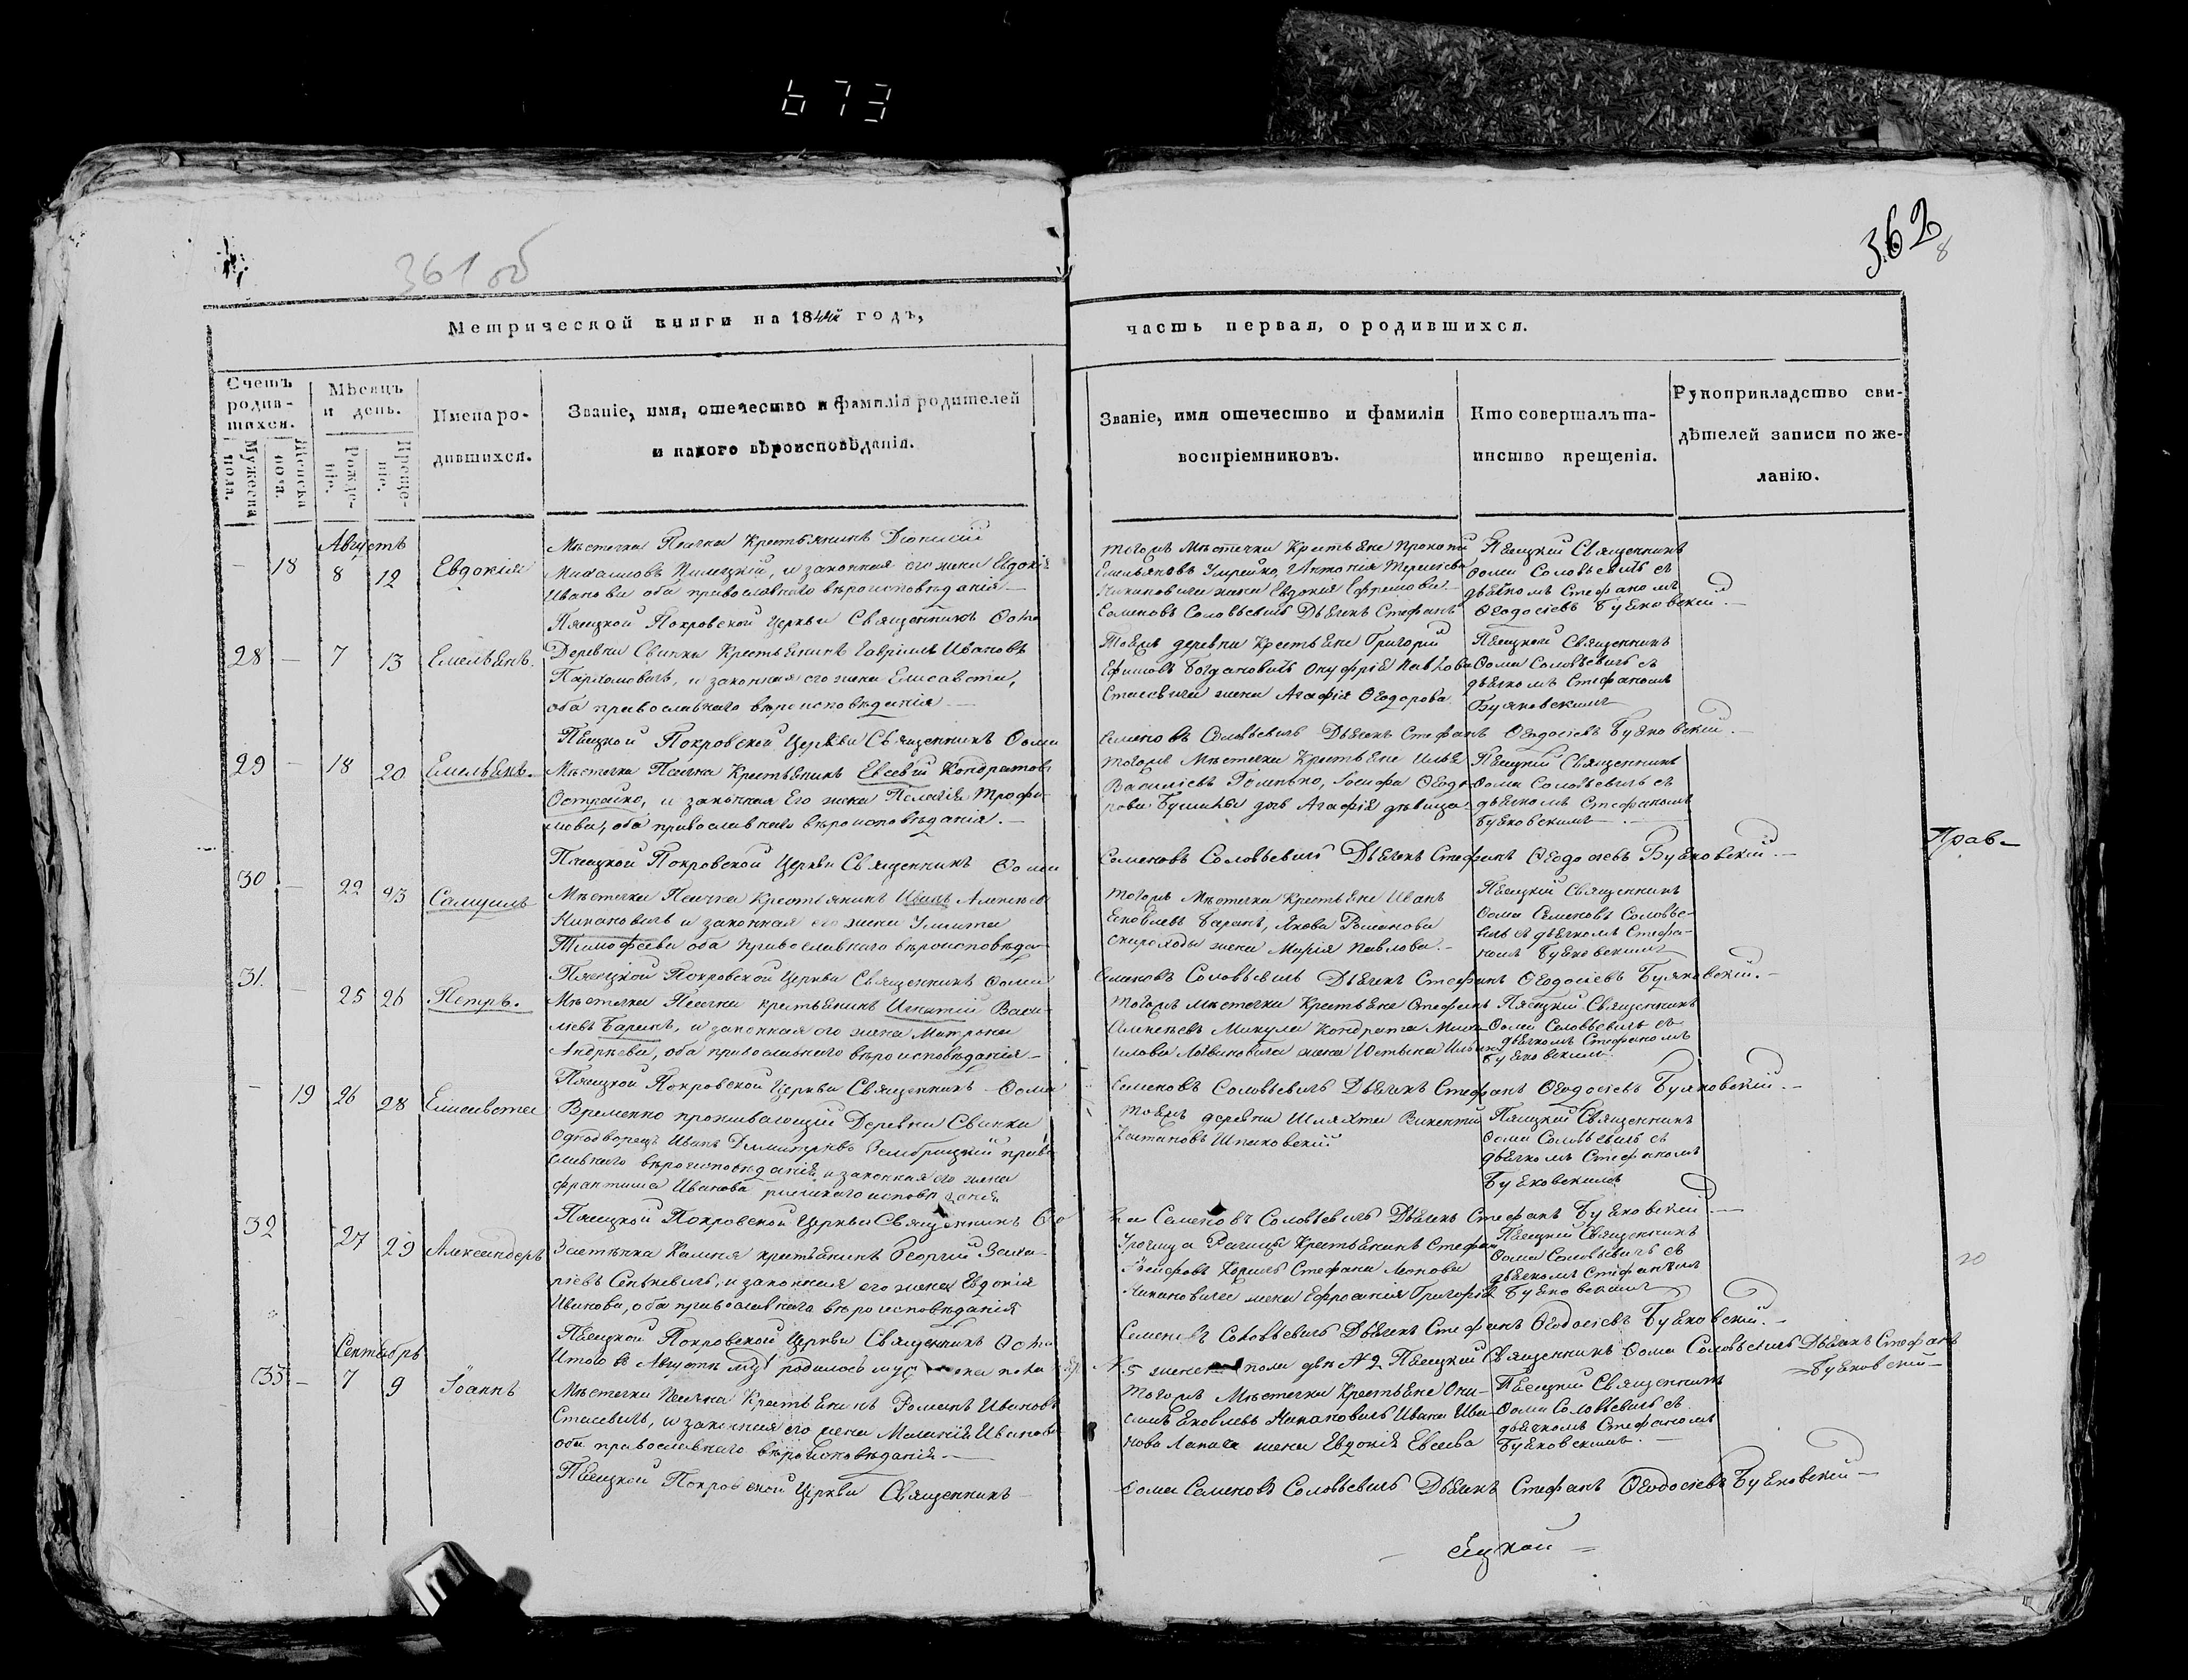 673
361 об
362
8
Метрической книги на 1844й годъ,
часть первая, о родившихся.
Счетъ родив-шихся.
Мужеска пола.
Женска пола.
Мѣсяцъ и день.
Рожде-нія.
Креще-нія.
Имена ро-
дившихся.
Званіе, имя, отечество и фамилія родителей
и какого вѣроисповѣданія.
Званіе, имя отечество и фамилія
воспріемниковъ.
Кто совершалъ та-
инство крещенія.
Рукоприкладство сви-
дѣтелей записи по же-
ланію.
Августъ
– 18 8 12 Евдокія
Мѣстечка Песчка Крестьянинъ Діонисій
Михаиловъ Пилецкій, и законная его жена Евдокія
Иванова оба православнаго вѣроисповѣданія
тогожъ Мѣстечка Крестьяне Прокопій
Емельяновъ
жена Евдокія Ефремова
Пѣсцкій Священникъ
Ѳома Соловьевичъ съ
дьячкомъ Стефаномъ
Пѣсцкой Покровской Церкви Священникъ Ѳома
Семеновъ Соловьевичъ Дьячекъ Стефанъ Ѳеодосіевъ Буяковскій.
28 – 7 13 Емельянъ.
Деревни Свинки Крестьянинъ Гавріилъ Ивановъ
Пархомовичъ, и законная его жена Елисавета,
оба православнаго вѣроисповѣданія
Тоежъ деревни Крестьяне Григорій
Ефимовъ Богдановичъ Онуфрія Павлова
Стасевича жена Агафія Ѳеодорова
Пѣсцкой Священникъ
Ѳома Соловьевичъ съ
дьячкомъ Стефаномъ
Буяковскимъ
Пѣсцкой Покровской Церкви Священникъ Ѳома
Семеновъ Соловьевичъ Дьячекъ Стефанъ Ѳеодосіевъ Буяковскій.
29 – 18 20 Емельянъ.
Мѣстечка Песчка Крестьянинъ Евсевій Кондратовъ
Остройко, и законная его жена Пелагія Трофи-
мова, оба православнаго вѣроисповѣданія.
тогожъ Мѣстечка Крестьяне Илья
Василіевъ
дочь Агафія дѣвица
Пѣсцкій Священникъ
Ѳома Соловьевичъ съ
дьячкомъ Стефаномъ
Буяковскимъ
Прав-
Пѣсцкой Покровской Церкви Священникъ Ѳома
Семеновъ Соловьевичъ Дьячекъ Стефанъ Ѳеодосіевъ Буяковскій.
30 – 22 23 Самуилъ
Мѣстечка Песчка Крестьянинъ Иванъ Алексѣевъ
Никановичъ и законная его жена Улита
Тимофеева оба православнаго вѣроисповѣда-
тогожъ Мѣстечка Крестьяне Иванъ
Яковлевъ Баранъ, Якова Романова
Скороходы жена Марія Павлова.
Пѣсцкій Священникъ
Ѳома Семеновъ Соловье-
вичъ съ дьячкомъ Стефа-
номъ Буяковскимъ
Пѣсцкой Покровской Церкви Священникъ Ѳома
Семеновъ Соловьевичъ Дьячекъ Стефанъ Ѳеодосіевъ Буяковскій.
31. – 25 26 Петръ.
Мѣстечка Песчка крестьянинъ Игнатій Васи-
льевъ Баранъ, и законная его жена Матрона
Андреева, оба православнаго вѣроисповѣданія
тогожъ мѣстечка Крестьяне Стефанъ
Алексѣевъ Микула Кондрата Миха-
илова Литвиновича жена Юстына
Пѣсцкій Священникъ
Ѳома Соловьевичъ съ
дьячкомъ Стефаномъ
Буяковскимъ
Пѣсцкой Покровской Церкви Священникъ Ѳома
Семеновъ Соловьевичъ Дьячекъ Стефанъ Ѳеодосіевъ Буяковскій.
– 19 26 28 Елисавета
Временно проживающій Деревни Свинки
Однодворецъ Иванъ Димитріевъ Замбрицкій право-
славнаго вѣроисповѣданія, и законная его жена
Францишка Иванова римскаго исповѣданія
Тоежъ деревни Шляхта Викентій
Каетановъ Шпаковскій
Пѣсцкій Священникъ
Ѳома Соловьевичъ съ
дьячкомъ Стефаномъ
Буяковскимъ
Пѣсцкой Покровской Церкви Священникъ Ѳо
ма Семеновъ Соловьевичъ Дьячекъ Стефанъ Буяковскій
32 27 29 Александеръ
Застѣнка Камня крестьянинъ Георгій Заха-
ріевъ Сенкевичъ, и законная его жена Евдокія
Иванова, оба православнаго вѣроисповѣданія
Урочища Рагищи Крестьянинъ Стефанъ
Іосифовъ Стефана Леонова
Никановича жена Ефросинія Григорія
Пѣсцкій Священникъ
Ѳома Соловьевичъ съ
дьячкомъ Стефаномъ
Буяковскимъ
20
Пѣсцкой Покровской Церкви Священникъ Ѳома
Семеновъ Соловьевичъ Дьячекъ Стефанъ Ѳеодосіевъ Буяковскій.
Сентябрь
Итого въ Августѣ родилось пола
№ 5 женска пола двѣ № 2 Пѣсцкій Священникъ Ѳома Соловьевичъ Дьячекъ Стефанъ
Буяковскій
33 – 7 9 Іоаннъ
Мѣстечка Песчка Крестьянинъ Романъ Ивановъ
Стасевичъ, и законная его жена Меланія Иванова
оба православнаго вѣроисповѣданія
Тогожъ Мѣстечка Крестьяне Они-
симъ Яковлевъ Никановичъ Ивана Ива-
нова Лапича жена Евдокія Евсеева
Пѣсцкій Священникъ
Ѳома Соловьевичъ съ
дьячкомъ Стефаномъ
Буяковскимъ.
Пѣсцкой Покровской Церкви Священникъ
Ѳома Семеновъ Соловьевичъ Дьячекъ Стефанъ Ѳеодосіевъ Буяковскій